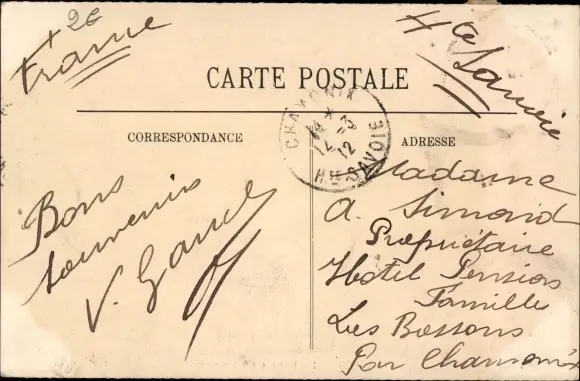 + 2€
France
Hte Savoie
CARTE POSTALE
CHAMONIX
14 -3
12
Hte SAVOIE
CORRESPONDANCE
ADRESSE
Bons
souvenirs
V.
Madame
A. Simond
Propriétaire
Hotel Pension
Famille
Les Bossons
Par Chamonix